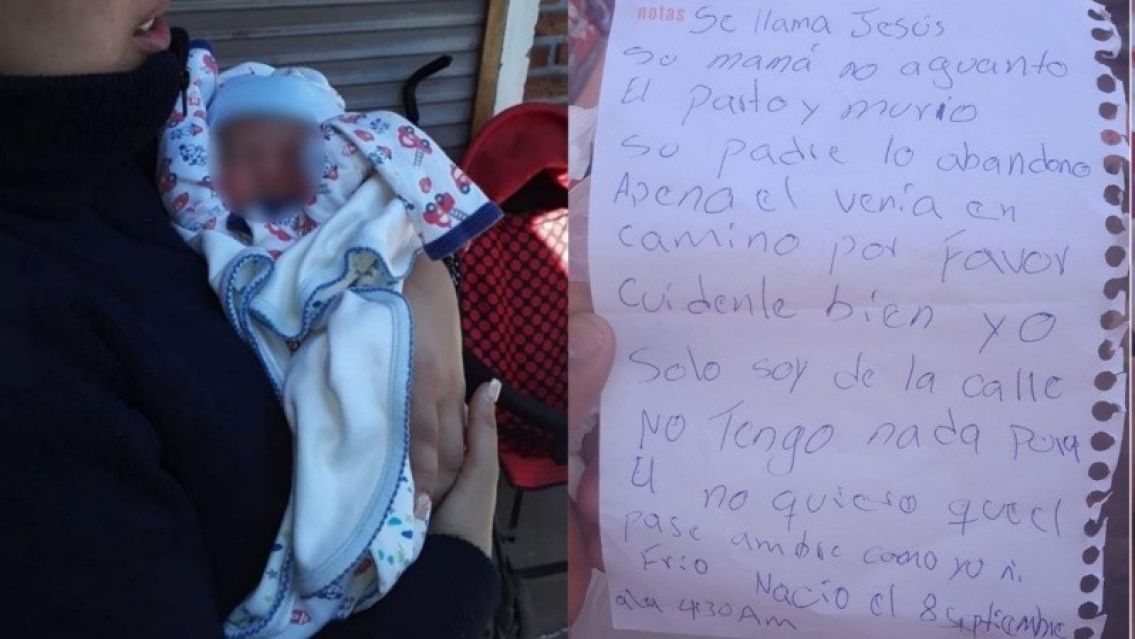 notas
Se llama Jesús
Su mamá no aguanto
El parto y murio
Su padre lo abandono
Apena el venía en
camino por Favor
Cuidenle bien yo
Solo soy de la calle
No Tengo nada para
El no quiero que el
pase ambre como yo ni
Frio Nacio el 8 septiembre
a la 4:30 Am